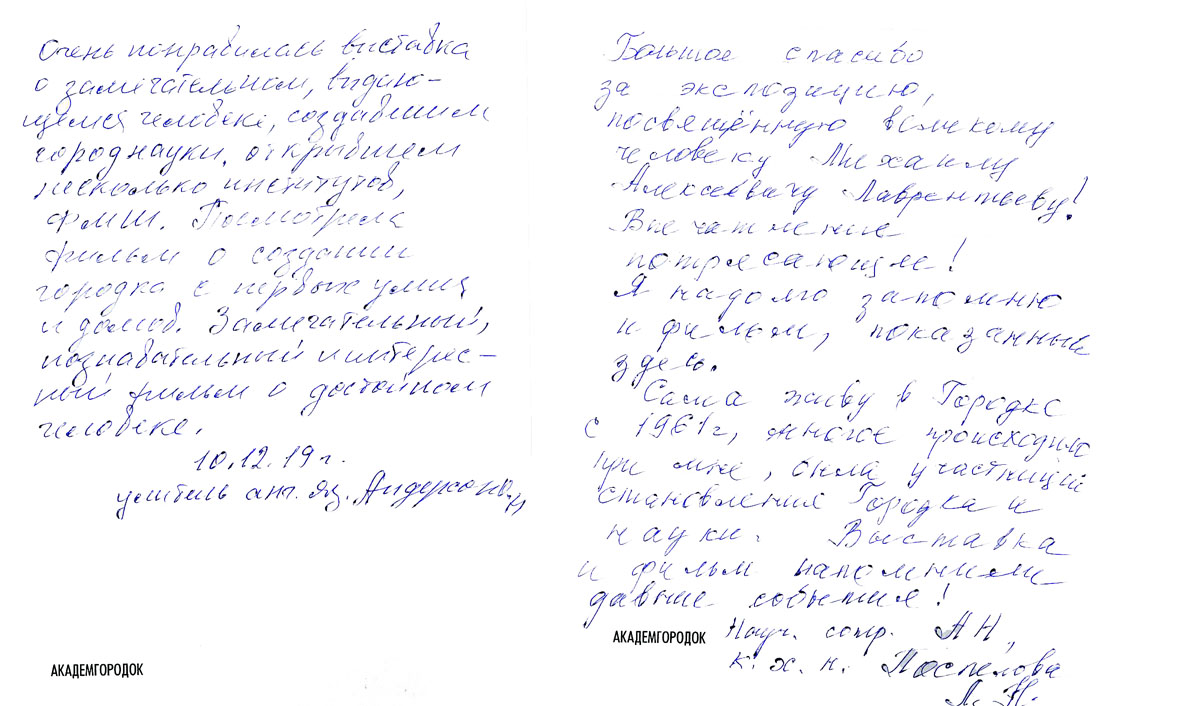 Очень понравилась выставка
о замечательном, выдаю-
щемся человеке, создавшем
город науки, открывшем
несколько институтов,
ФМШ. Посмотрела
фильм о создании
городка с первых улиц
и домов. Замечательный,
познавательный и интерес-
ный фильм о достойном
человеке.
10.12.19 г.
учитель анг. яз.
АКАДЕМГОРОДОК
Большое спасибо
за экспозицию,
посвящённую великому
человеку Михаилу
Алексеевичу Лаврентьеву!
Впечатление
потрясающее!
Я надолго запомню
и фильм, показанный
здесь.
Сама живу в Городке
с 1961г, многое происходило
при мне, была участницей
становления Городка и
науки. Выставка
и фильм напомнили
давние события!
АКАДЕМГОРОДОК Науч. сотр. АН,
к. х. н. Поспелова
Л. Н.